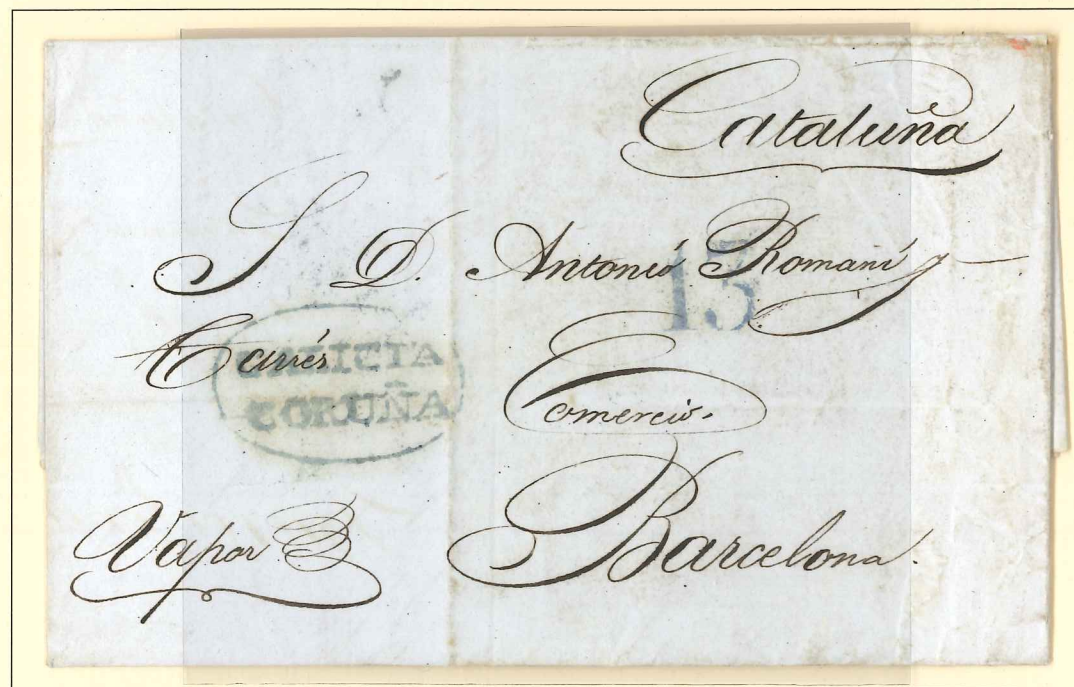 Cataluña
S. D. Antonio Romaní y
Carrés
GALICIA
CORUÑA
Comercio.
Vapor
Barcelona.